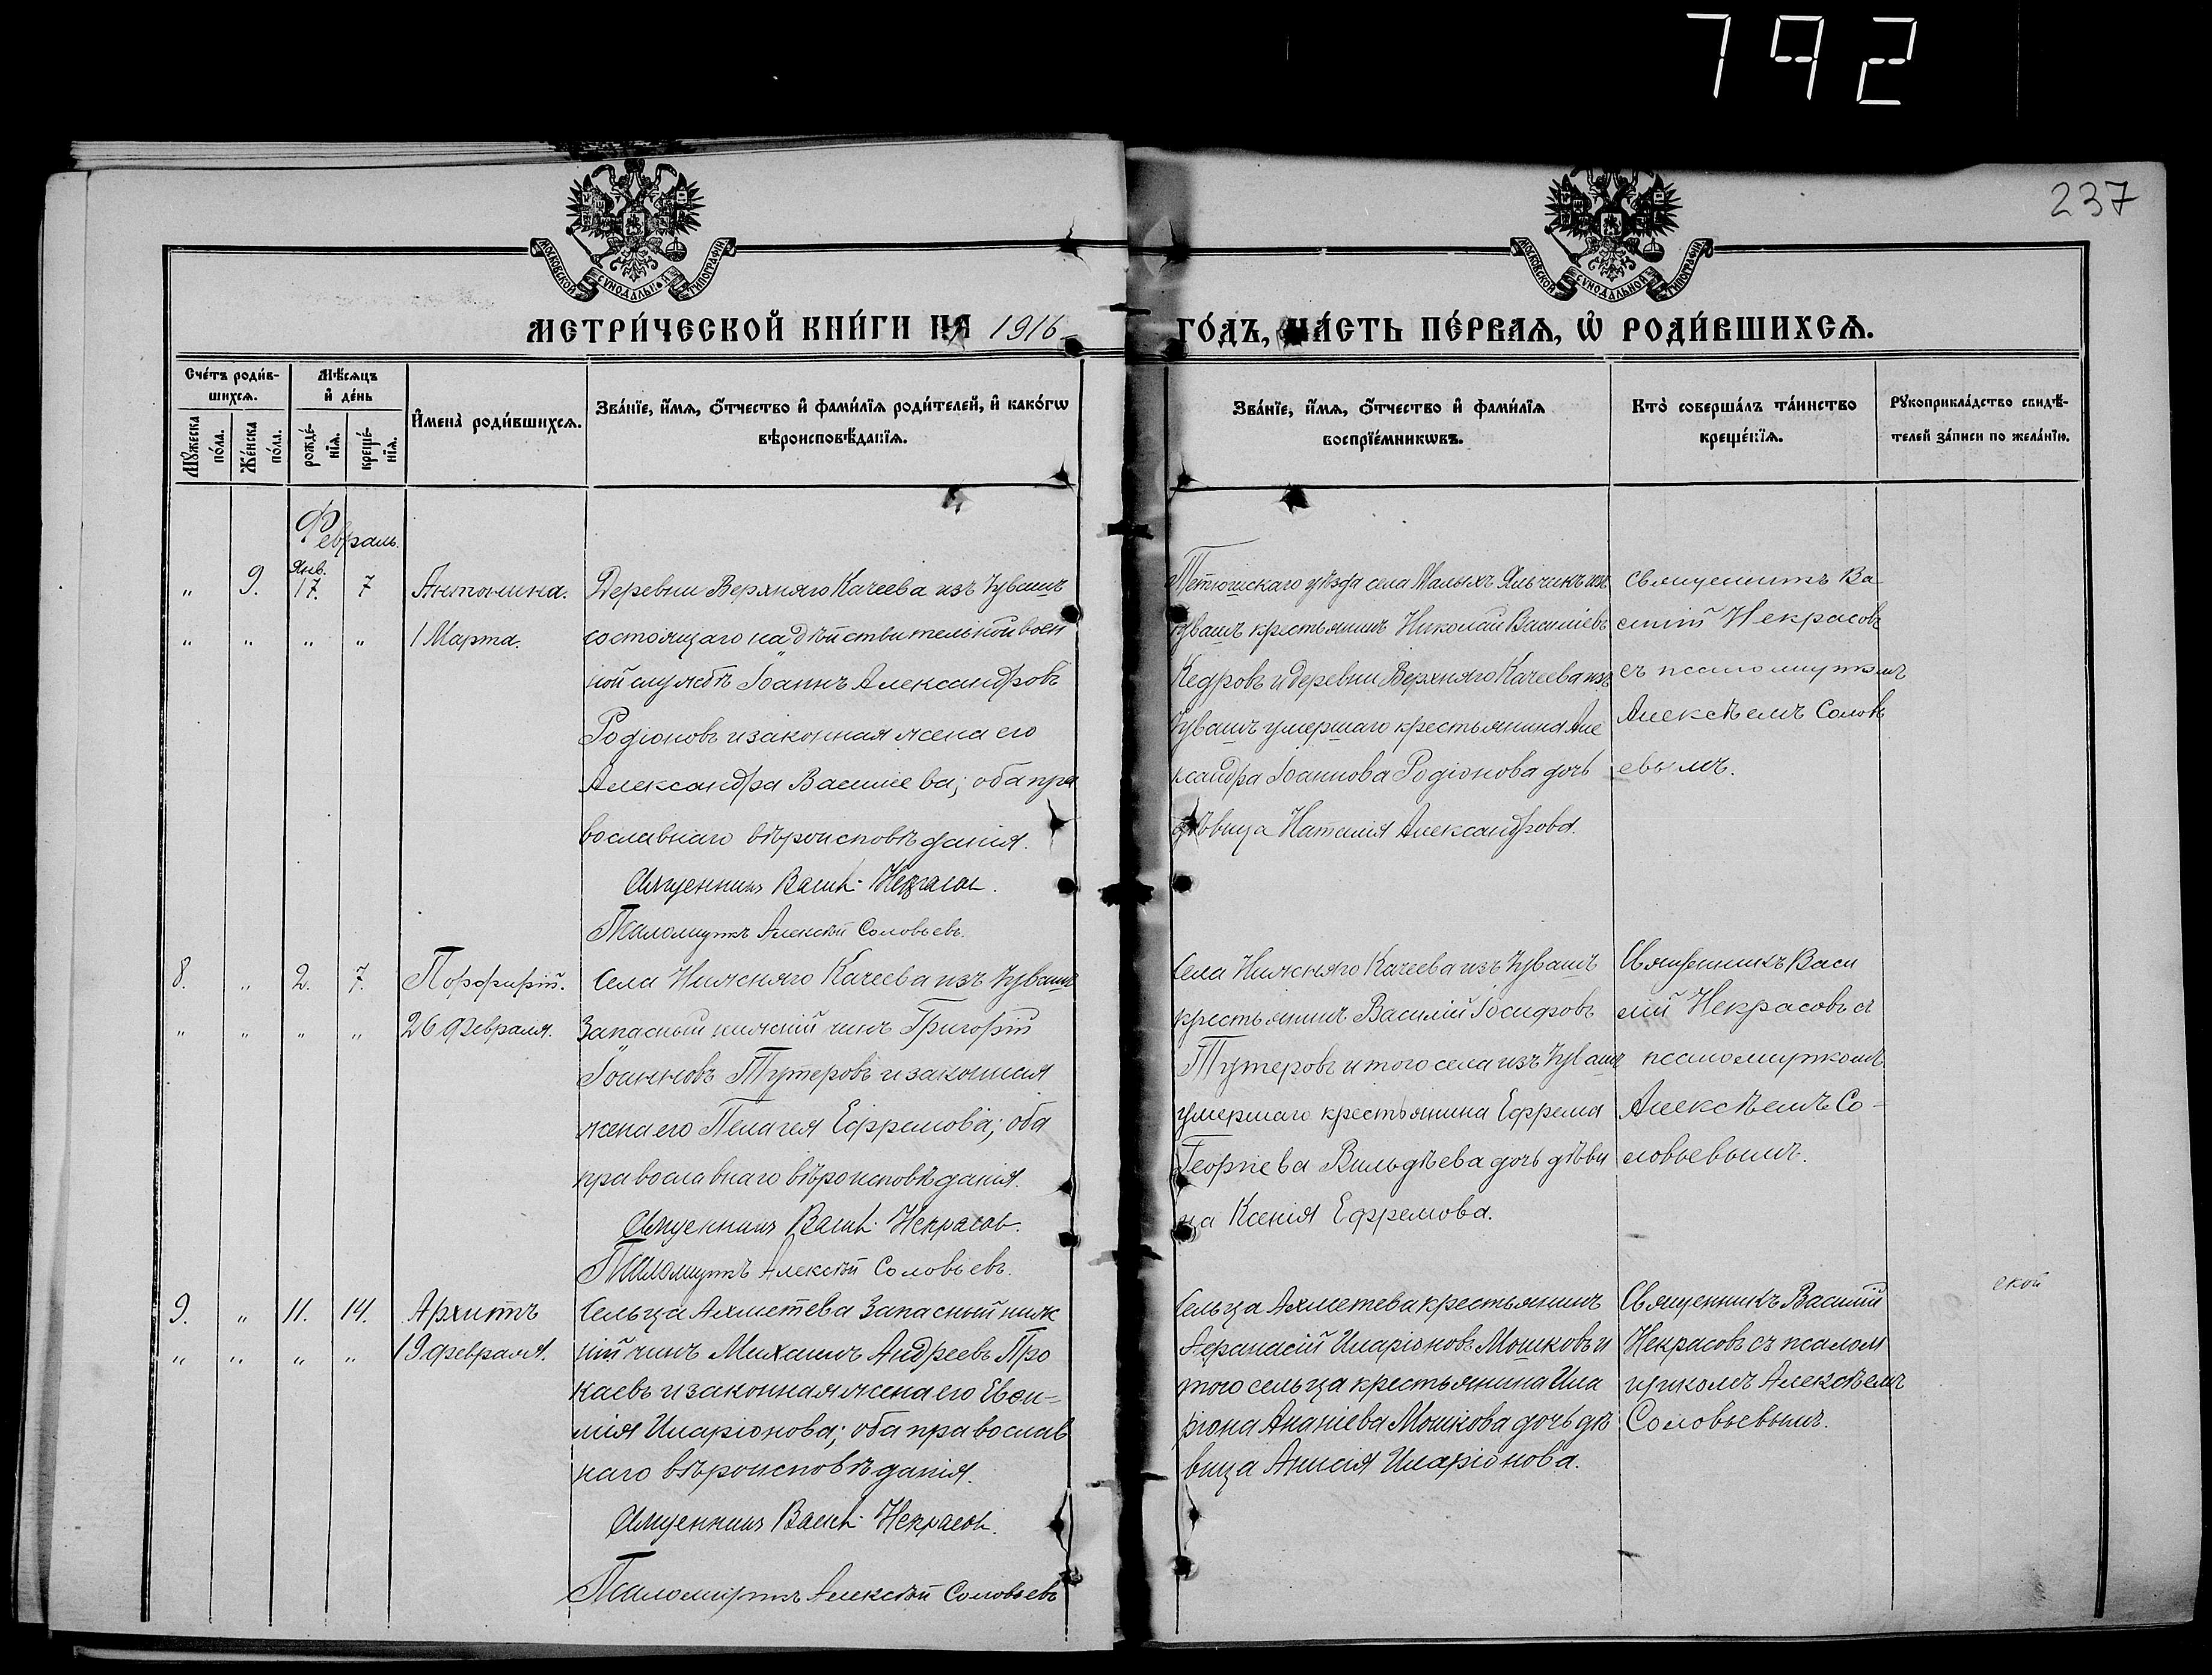 792
237
МОСКОВСКОЙ СѴНОДАЛЬНОЙ ТИПОГРАФІИ
МОСКОВСКОЙ СѴНОДАЛЬНОЙ ТИПОГРАФІИ
МЕТРИ́ЧЕСКОЙ КНИ́ГИ НА 1916
ГО́ДЪ, ЧА́СТЬ ПЕ́РВАѦ, Ѡ҆ РОДИ́ВШИХСѦ.
Сче́тъ роди́в-
шихсѧ.
Мꙋ́жеска
по́ла.
Же́нска
по́ла.
Мѣ́сѧцъ
и҆ де́нь
рожде́-
нїѧ.
креще́-
нїѧ.
И҆мена̀ роди́вшихсѧ.
Зва́нїе, и҆́мѧ, ѻ҆́тчество и҆ фами́лїѧ роди́телей, и҆ како́гѡ
вѣроисповѣ́данїѧ.
Зва́нїе, и҆́мѧ, ѻ҆́тчество и҆ фами́лїѧ
воспрїе́мникѡвъ.
Кто̀ соверша́лъ та́инство
креще́нїѧ.
Рꙋкоприкла́дство свидѣ́-
телей за́писи по жела́нїю.
Февраль.
Янв.
„ 9. 17. 7 Антонина.
„ „ „ „ 1 Марта.
Деревни Верхняго Качеева изъ Чувашъ
состоящаго на дѣйствительной воен
ной службѣ Іоаннъ Александровъ
Родіоновъ и законная жена его
Александра Василіева; оба пра
вославнаго вѣроисповѣданія.
Священникъ Васил. Некрасовъ.
Псаломщикъ Алексѣй Соловьевъ.
Тетюшскаго уѣзда села Малыхъ Яльчикъ изъ
чувашъ крестьянинъ Николай Василіевъ
Кедровъ и деревни Верхняго Качеева изъ
Чувашъ умершаго крестьянина Але
ксандра Іоаннова Родіонова дочь
дѣвица Наталія Александрова.
Священникъ Ва
силій Некрасовъ
съ псаломщикомъ
Алексѣемъ Соловь
евымъ.
8. „ 2. 7. Порфирій.
„ „ „ „ 26 февраля.
Села Нижняго Качеева изъ Чувашъ
Запасный нижній чинъ Григорій
Іоанновъ Тутеровъ и законная
жена его Пелагея Ефремова; оба
православнаго вѣроисповѣданія.
Священникъ Васил. Некрасовъ.
Псаломщикъ Алексѣй Соловьевъ.
Села Нижняго Качеева изъ Чувашъ
крестьянинъ Василій Іосифовъ
Тутеровъ и того села изъ Чувашъ
умершаго крестьянина Ефрема
Георгіева Вильдѣева дочь дѣви
ца Ксенія Ефремова.
Священникъ Васи
лій Некрасовъ съ
псаломщикомъ
Алексѣемъ Со=
ловьевымъ.
9. „ 11. 14. Архипъ
„ „ „ „ 19 февраля.
Сельца Ахметева Запасный ниж
ній чинъ Михаилъ Андреевъ Про
каевъ и законная жена его Евѳи=
мія Иларіонова; оба православ
наго вѣроисповѣданія.
Священникъ Васил. Некрасовъ.
Псаломщикъ Алексѣй Соловьевъ
Сельца Ахметева крестьянинъ
Аѳанасій Иларіоновъ Мошковъ и
того сельца крестьянина Ила
ріона Ананіева Мошкова дочь дѣ
вица Анисія Иларіонова.
Священникъ Василій
Некрасовъ съ псалом
щикомъ Алексѣемъ
Соловьевымъ.
ской